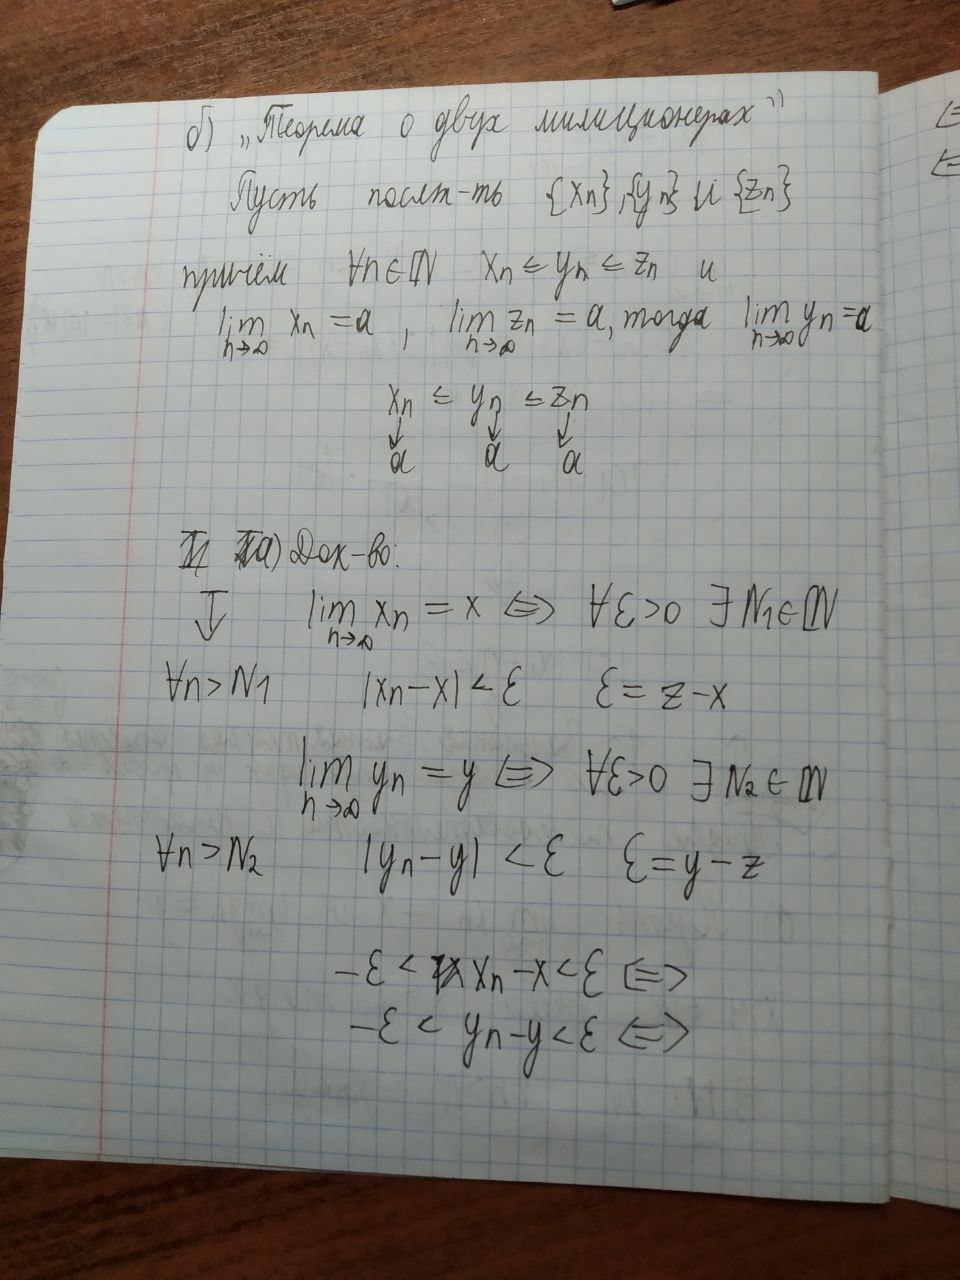 б) „Теорема о двух милиционерах"
Пусть послед-ть {xn}, {yn} и {zn}
причём ∀n∈ℕ xn ≤ yn ≤ zn и
lim n→∞ xn = a, lim n→∞ zn = a, тогда lim n→∞ yn = a
xn ≤ yn ≤ zn
↓ ↓ ↓
a a a
а) Док-во:
lim n→∞ xn = x ⟺ ∀ε>0 ∃ N1∈ℕ
∀n>N1 |xn−x|<ε ε = z−x
lim n→∞ yn = y ⟺ ∀ε>0 ∃ N2∈ℕ
∀n>N2 |yn−y| <ε ε=y−z
−ε < xn−x<ε ⟺
−ε < yn−y<ε ⟺